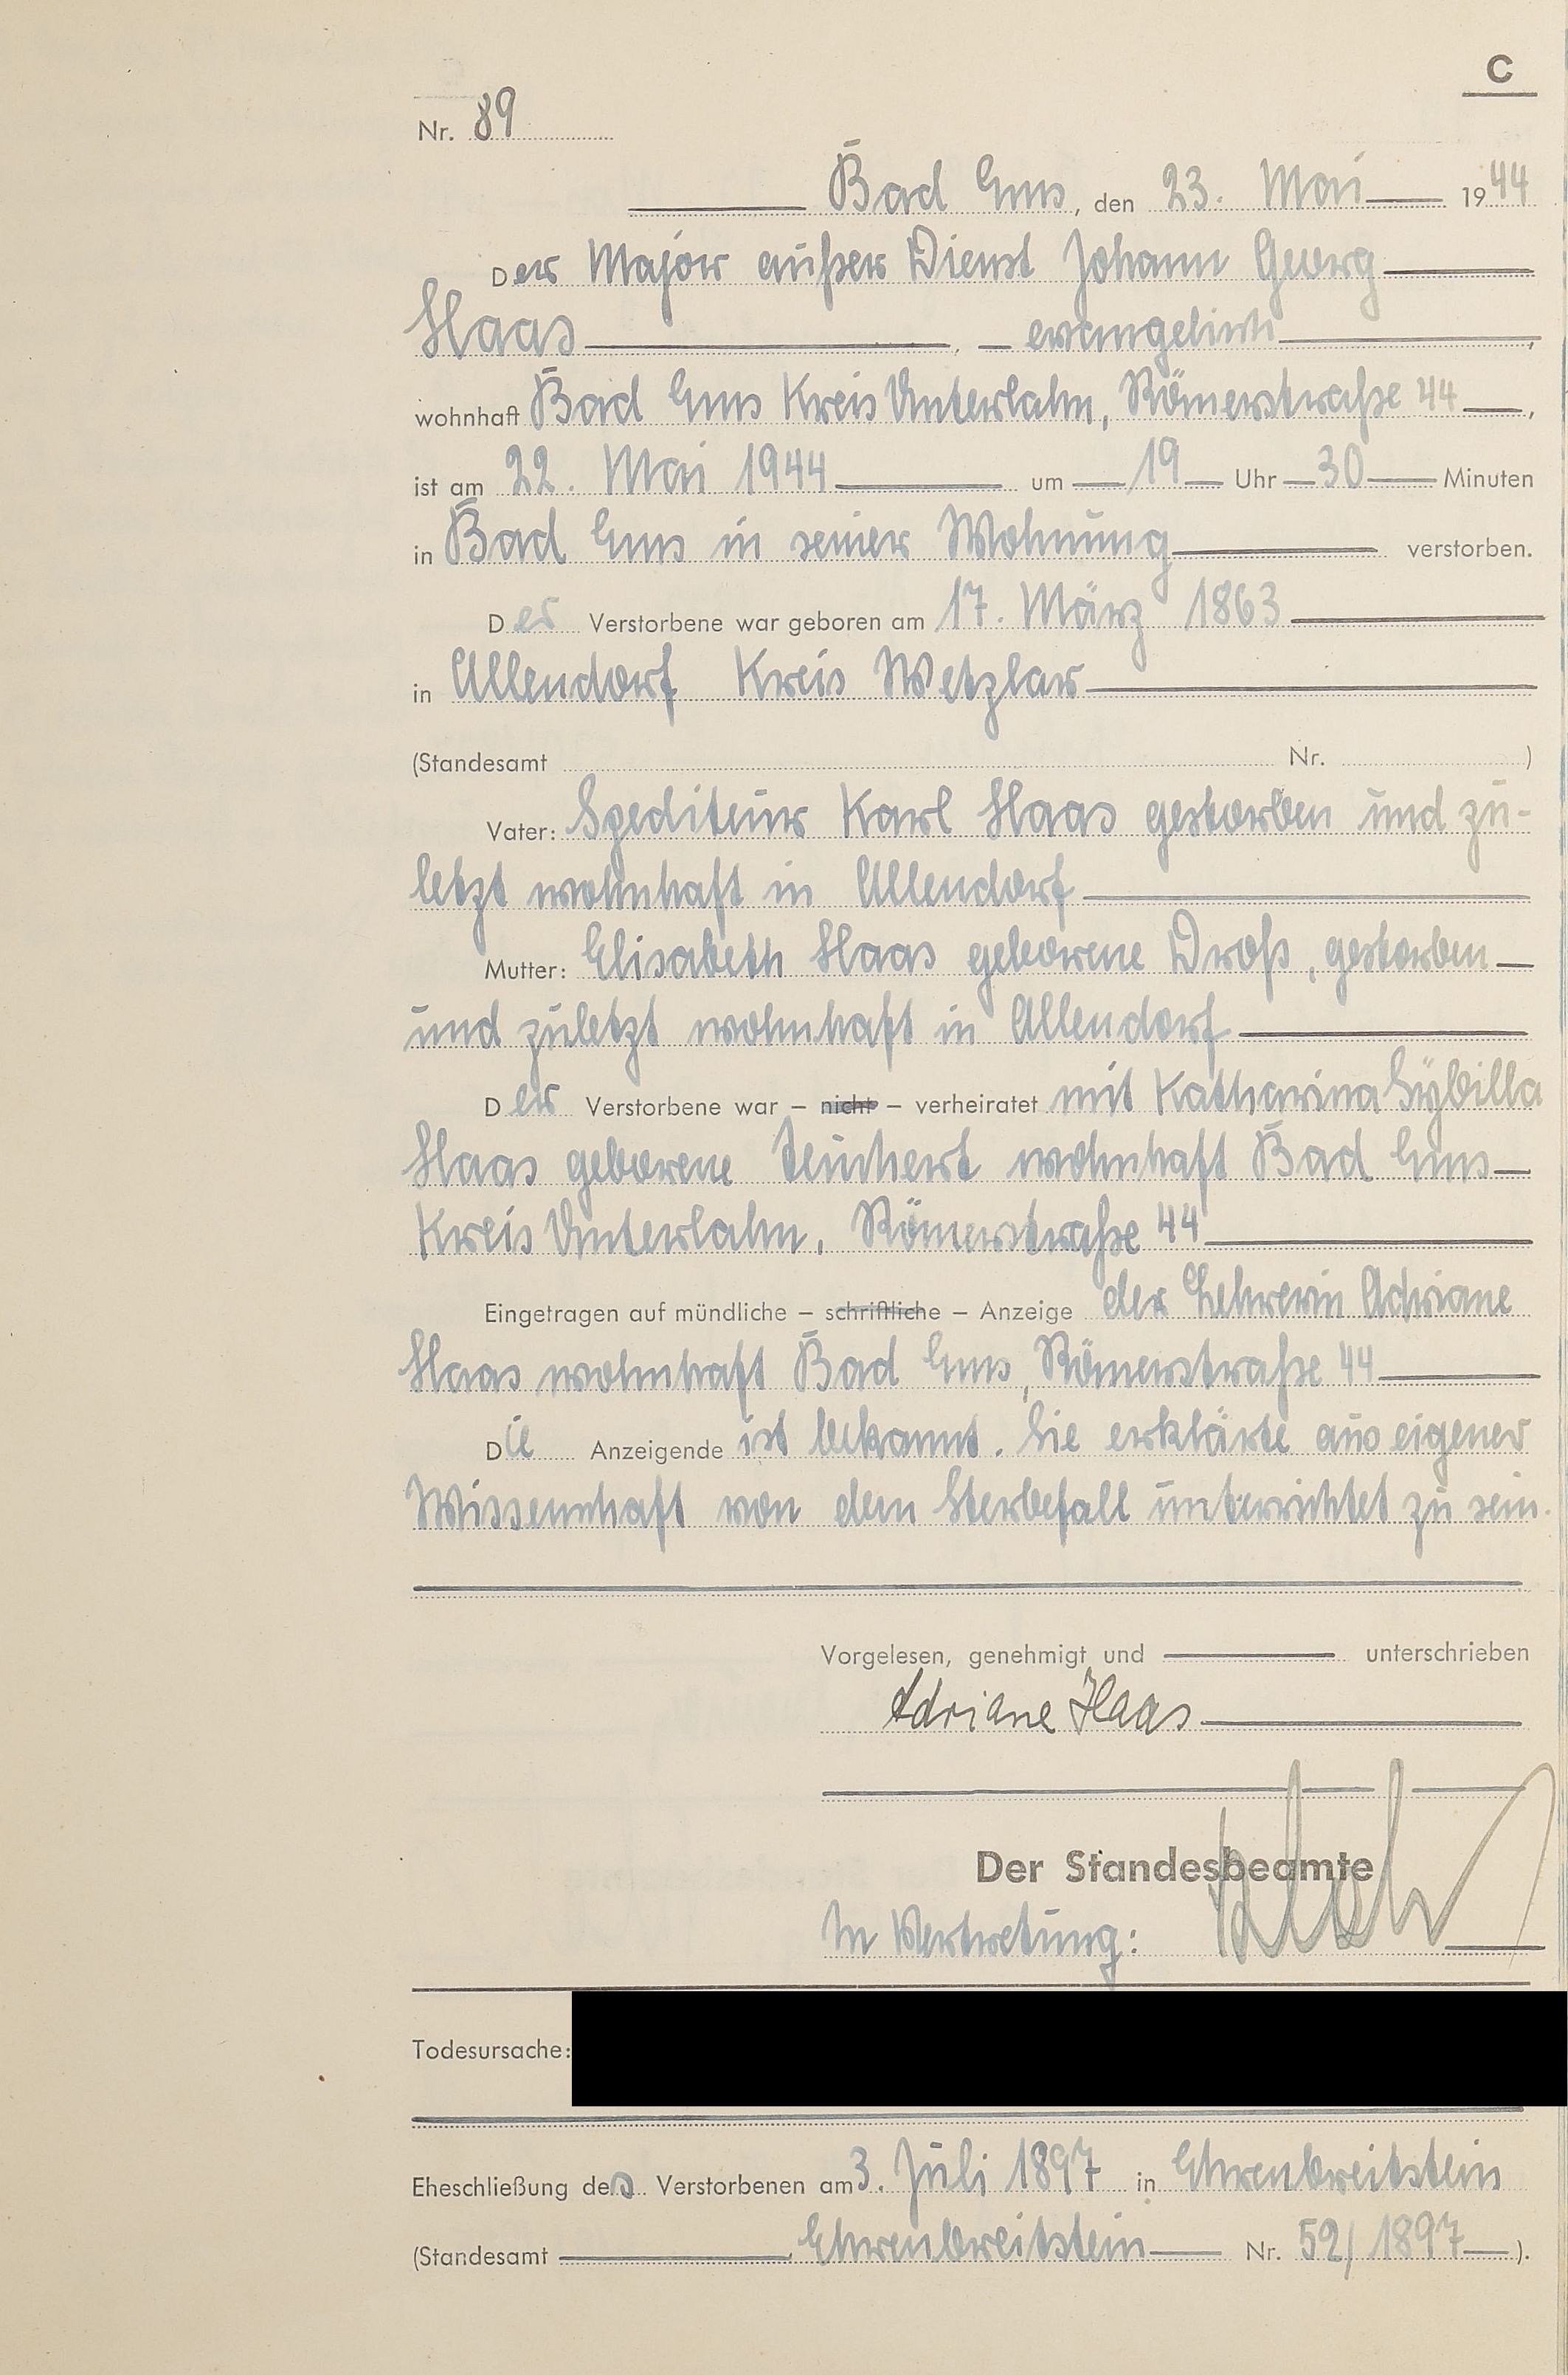 C
Nr. 89
Bad Ems, den 23. Mai 1944
Der Major außer Dienst Johann Georg
Haas, evangelisch,
wohnhaft Bad Ems Kreis Unterlahn, Römerstraße 44,
ist am 22. Mai 1944 um 19 Uhr 30 Minuten
in Bad Ems in seiner Wohnung verstorben.
Der Verstorbene war geboren am 17. März 1863
in Allendorf Kreis Wetzlar
(Standesamt Nr. )
Vater: Spediteur Karl Haas gestorben und zu-
letzt wohnhaft in Allendorf
Mutter: Elisabeth Haas geborene Droß, gestorben
und zuletzt wohnhaft in Allendorf
Der Verstorbene war – nicht – verheiratet mit Katharina Sybilla
Haas geborene Teuchert wohnhaft Bad Ems
Kreis Unterlahn, Römerstraße 44
Eingetragen auf mündliche – schriftliche – Anzeige der Lehrerin Adriane
Haas wohnhaft Bad Ems, Römerstraße 44
Die Anzeigende ist bekannt. Sie erklärte aus eigener
Wissenschaft von dem Sterbefall unterrichtet zu sein.
Vorgelesen, genehmigt und unterschrieben
Adriane Haas
Der Standesbeamte
In Vertretung:
Todesursache:
Eheschließung des Verstorbenen am 3. Juli 1897 in Ehrenbreitstein
(Standesamt Ehrenbreitstein Nr. 52/1897).